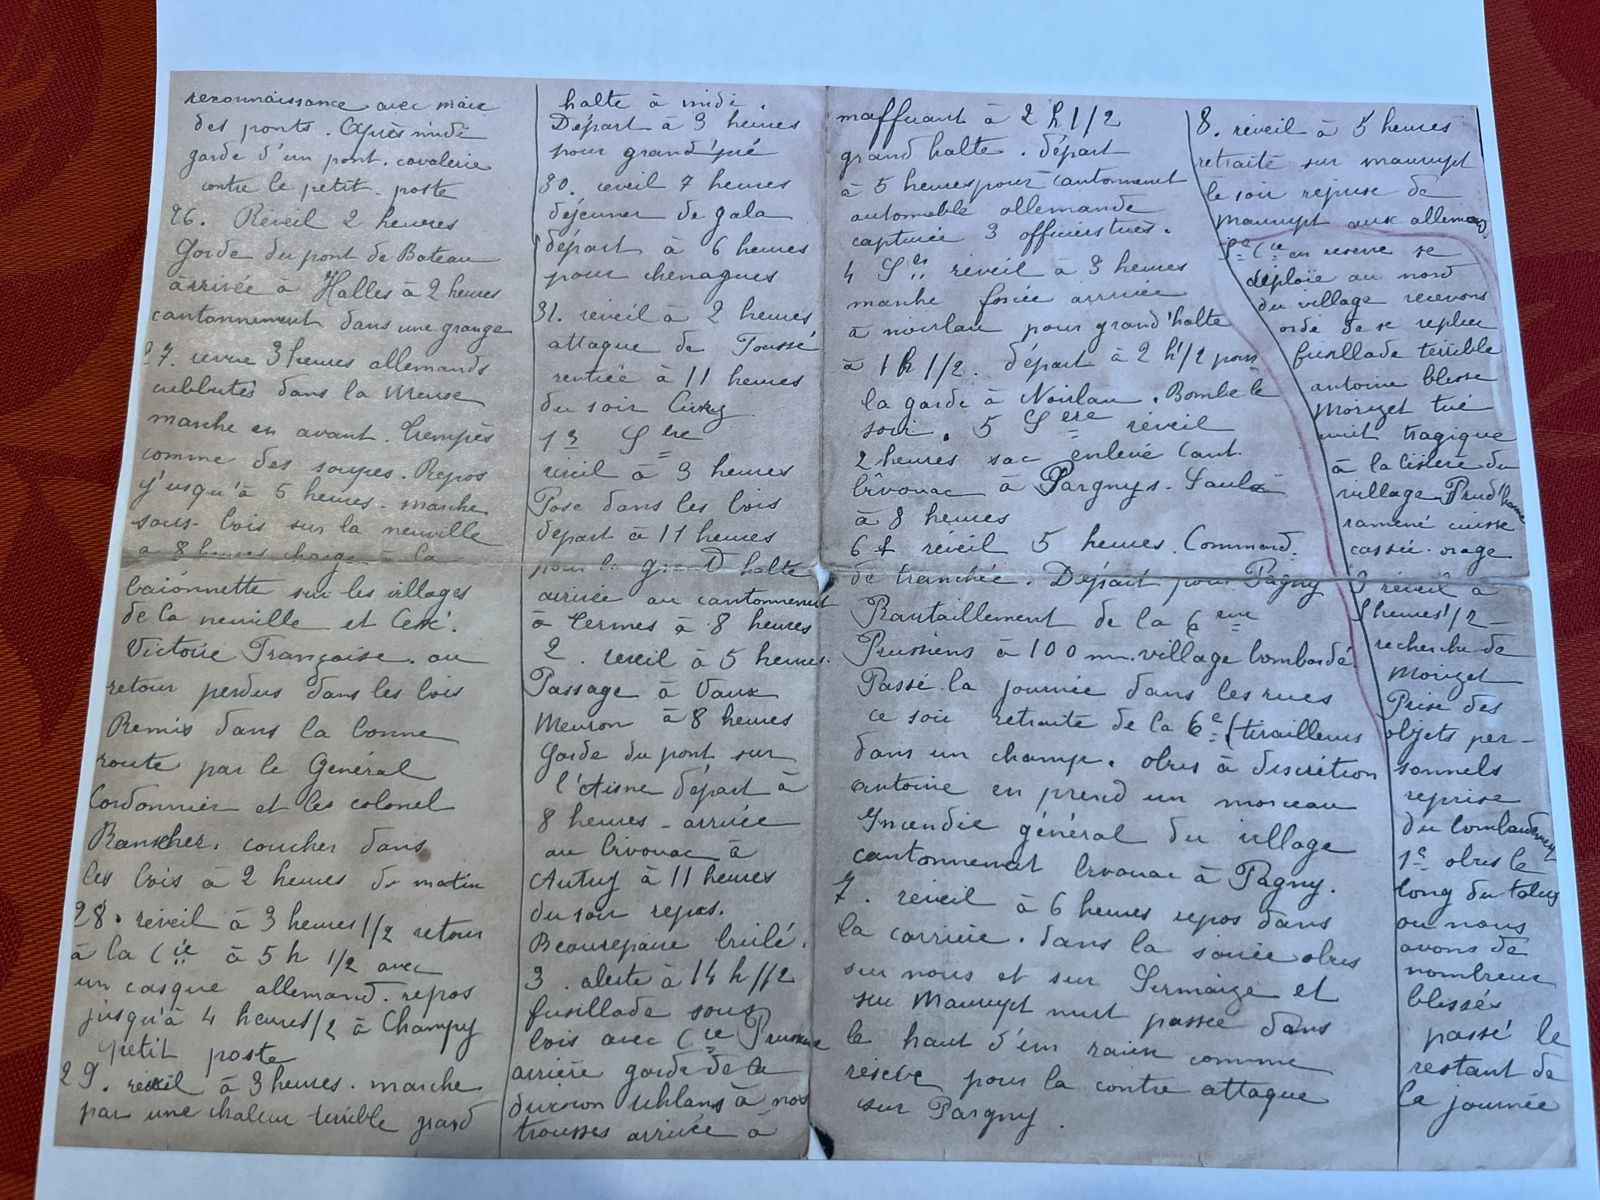 reconnaissance avec maire
des ponts. Après midi
garde d'un pont. cavalerie
contre le petit-poste
26. Réveil 2 heures
Garde du pont de Bateau
arrivée à Halles à 2 heures
cantonnement dans une grange
27. 3 heures allemands
culbutés dans la Meuse
marche en avant. Trempés
comme des soupes. Repos
jusqu'à 5 heures - marche
sous-bois sur la neuville
à 8 heures charge à la
baïonnette sur les villages
de la neuville et
Victoire Française. au
retour perdus dans les bois
Remis dans la bonne
route par le Général
Cordonnier et le colonel
coucher dans
les bois à 2 heures du matin
28. réveil à 3 heures 1/2 retour
à la Cie à 5 h 1/2 avec
un casque allemand. repos
jusqu'à 4 heures 1/2 à Champy
petit poste
29. réveil à 3 heures. marche
par une chaleur terrible grand
halte à midi.
Départ à 3 heures
pour grand'pré
30. reveil 7 heures
déjeuner de gala
départ à 6 heures
pour chenagues
31. réveil à 2 heures
attaque de
rentrée à 11 heures
du soir
1er Sbre
réveil à 3 heures
Pose dans les bois
départ à 11 heures
pour la grand halte
arrivée au cantonnement
à Termes à 8 heures
2. reveil à 5 heures.
Passage à Vaux
Mouron à 8 heures
Garde du pont sur
l'Aisne départ à
8 heures - arrivée
au bivouac à
Autry à 11 heures
du soir repos.
Beaurepaire brulé.
3. alerte à 14 h 1/2
fusillade sous
bois avec Cie Prussienne
arrière garde de la
division Uhlans à nos
trousses arrivée à
maffrecourt à 2 h 1/2
grand halte. départ
à 5 heures pour cantonnement
automobile allemande
capturée 3 officiers tués.
4 Sbre réveil à 3 heures
marche forcée arrivée
à noirlau pour grand'halte
à 1 h 1/2. départ à 2 h 1/2 pour
la garde à Noirlau. Bombe le
soir. 5 Sbre réveil
2 heures sac enlevé Cant.
bivouac à Pargnys-Saulx
à 8 heures
6 réveil 5 heures. Command.
de tranchée. Départ pour Pagny
Ravitaillement de la 6eme
Prussiens à 100 m. village bombardé.
Passé la journée dans les rues
ce soir retraite de la 6e (tirailleurs
dans un champ. obus à discrétion
antoine en prend un morceau
Incendie général du village
cantonnement bivouac à Pagny.
7. réveil à 6 heures repos dans
la carrière. dans la soirée obus
sur nous et sur Sermaize et
sur Maurupt nuit passée dans
le haut d'un ravin comme
réserve pour la contre attaque
sur Pargny.
8. réveil à 5 heures
retraite sur maurupt
le soir reprise de
Maurupt aux allemands
Cie en reserve se
déploie au nord
du village recevons
ordre de se replier
fusillade terrible
antoine blessé
Morizet tué
nuit tragique
à la lisière du
village Prud'homme
ramené cuisse
cassée. orage
9 réveil à
heures 1/2 -
recherche de
Morizet
Prise des
objets per-
sonnels
reprise
du bombardement
obus le
long du talus
ou nous
avons de
nombreux
blessés
passé le
restant de
la journée